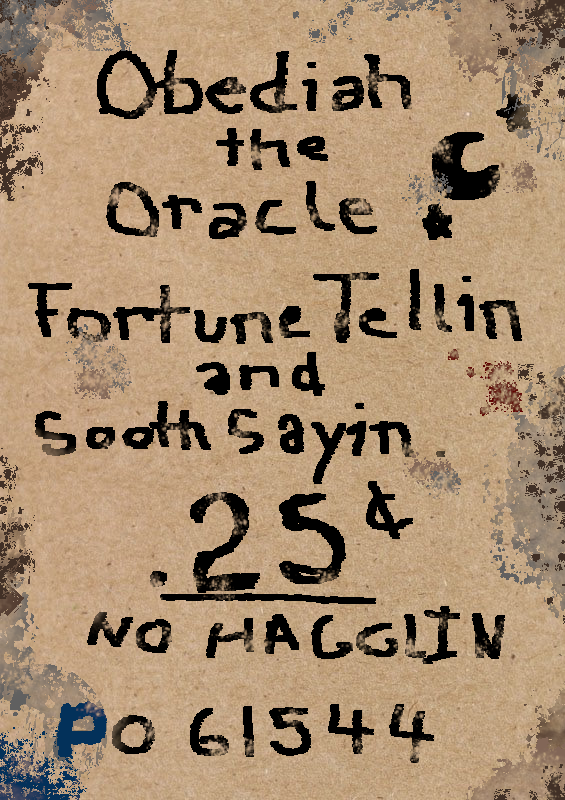 Obediah
the
Oracle
Fortune Tellin
and
Sooth Sayin
.25¢
NO HAGGLIN
PO 61544